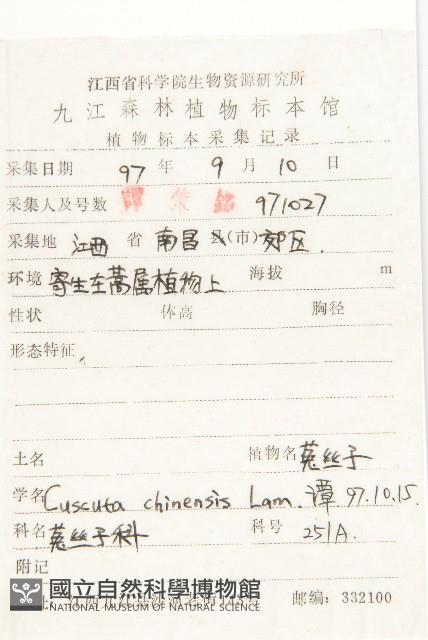 江西省科学院生物资源研究所
九江森林植物标本馆
植物标本采集记录
采集日期 97 年 9 月 10 日
采集人及号数 譚荣銘 971027
采集地 江西 省 南昌 县(市) 郊区.
环境 寄生在蒿属植物上 海拔 m
性状 体高 胸径
形态特征
土名 植物名 菟丝子
学名 Cuscuta chinensis Lam. 谭 97.10.15.
科名 菟丝子科 科号 251A.
附记
國立自然科學博物館
NATIONAL MUSEUM OF NATURAL SCIENCE
邮编: 332100